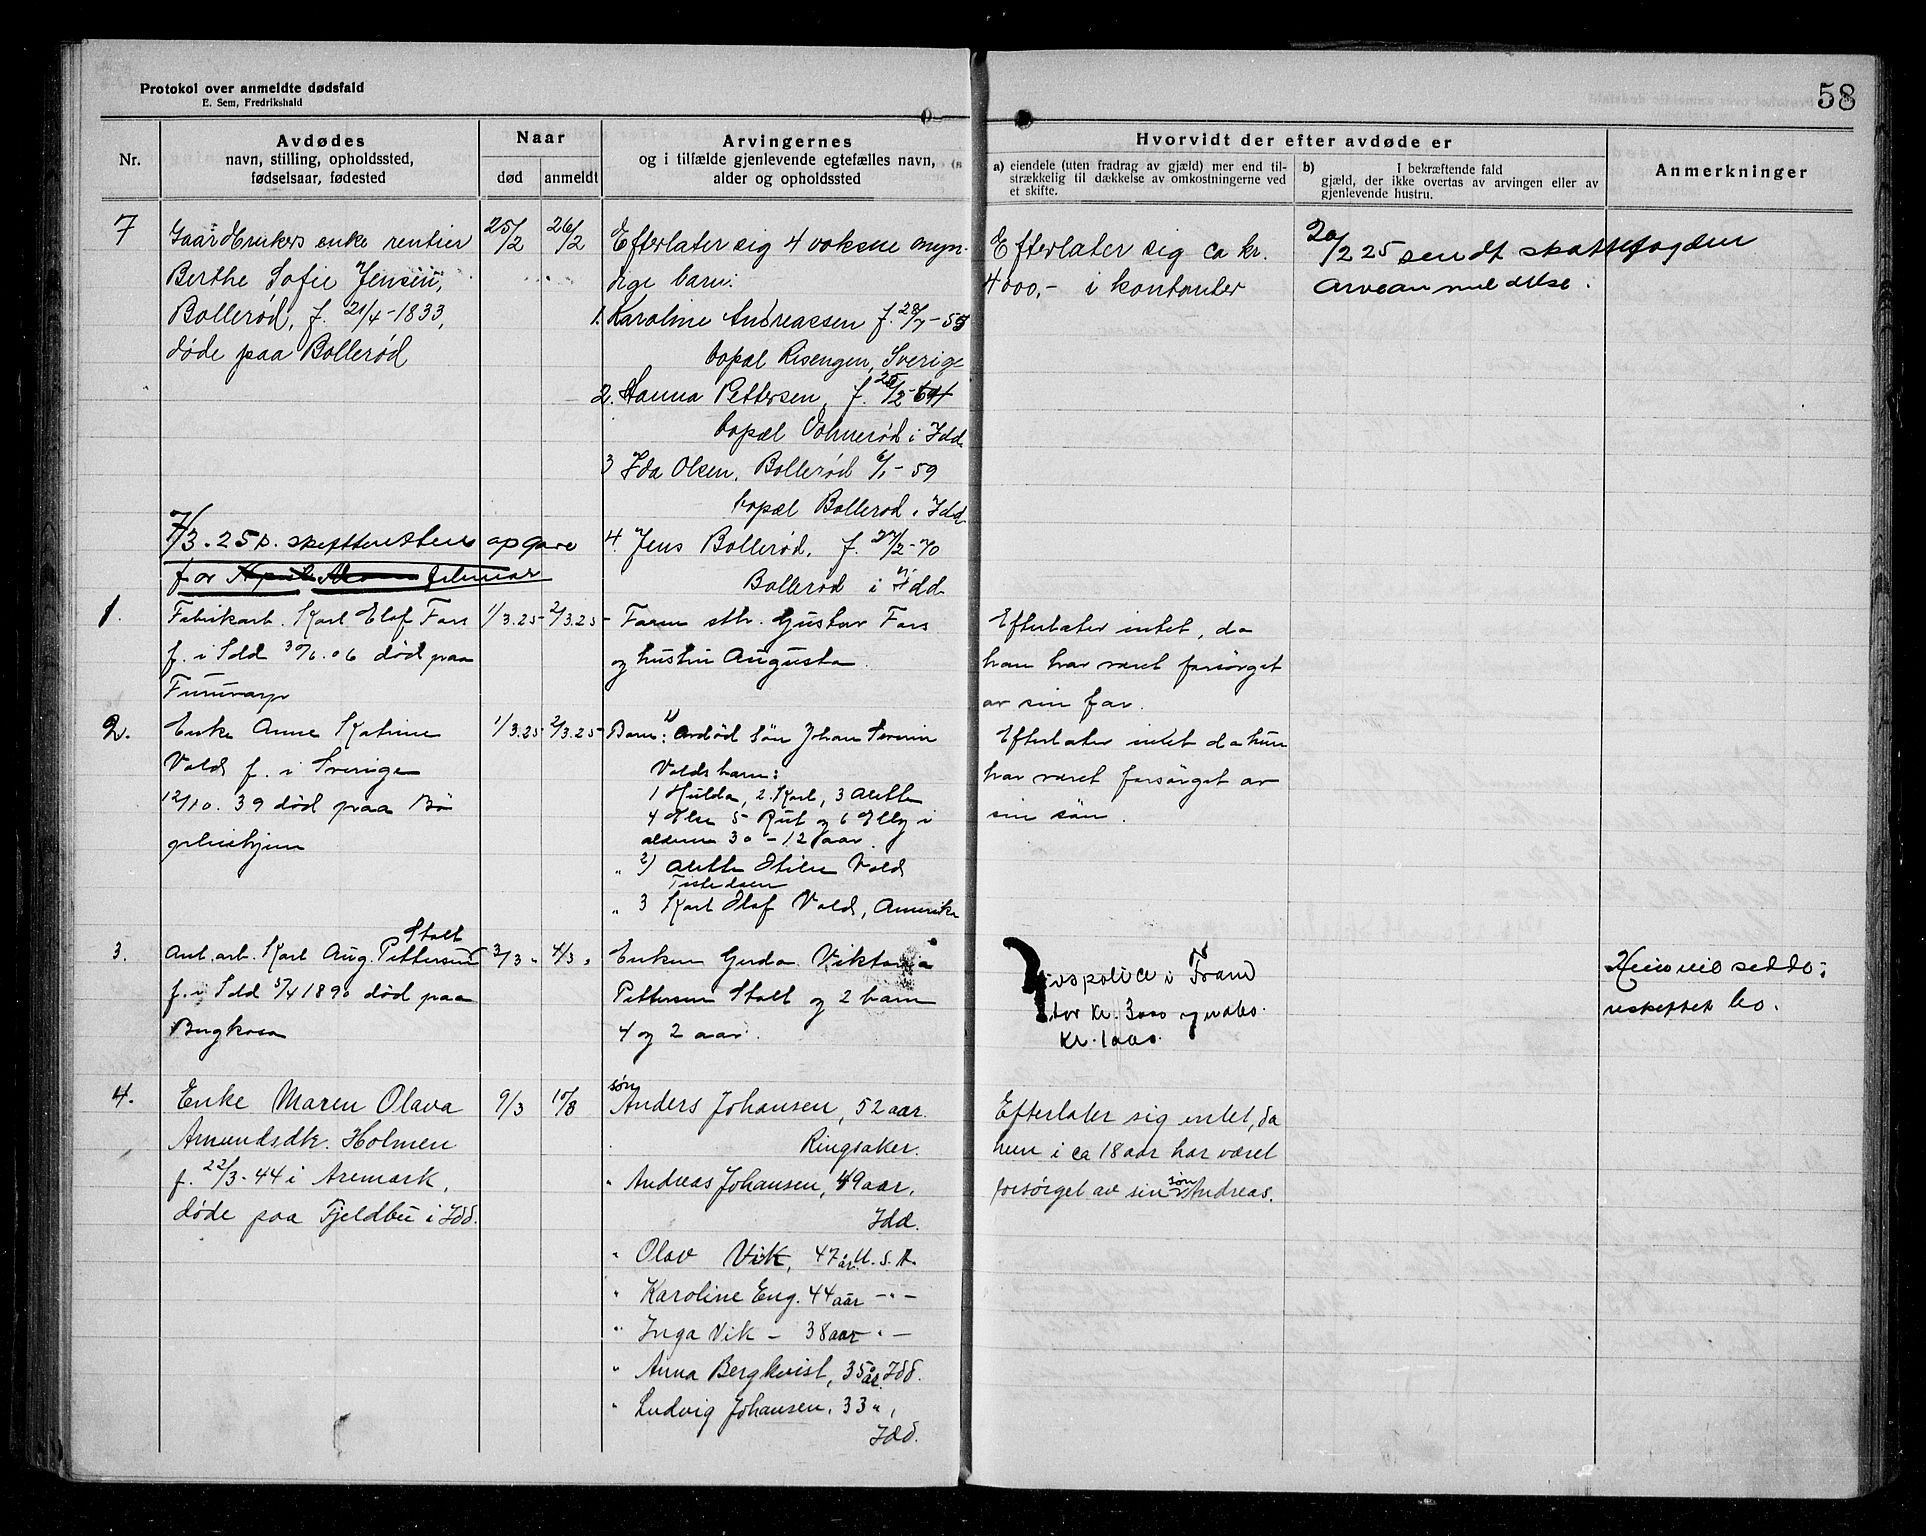 58
Protokol over anmeldte dødsfald
E. Sem, Fredrikshald
Nr.
Avdødes
navn, stilling, opholdssted,
fødselsaar, fødested
Naar
død
anmeldt
Arvingernes
og i tilfælde gjenlevende egtefælles navn,
alder og opholdssted
Hvorvidt der efter avdøde er
a) eiendele (uten fradrag av gjæld) mer end til-
strækkelig til dækkelse av omkostningerne ved
et skifte.
b) I bekræftende fald
gjæld, der ikke overtas av arvingen eller av
gjenlevende hustru.
Anmerkninger
7
Gaardbrukers enke rentier
Berthe Sofie Jensen,
Bollerød, f. 21/4-1833,
døde paa Bollerød
25/2
26/2
Efterlater sig 4 voksne myn-
dige barn:
1. Karoline Andreassen f. 28/7-55
bopæl Risengen, Sverige
2. Hanna Pettersen, f. 25/2-64
bopæl i Idd
3 Ida Olsen, Bollerød 6/1-59
bopæl Bollerød i Idd
4. Jens Bollerød, f. 27/2-70
Bollerød i Idd
Efterlater sig ca kr.
4000,- i kontanter
20/2 25 sendt skattefogden
arveanmeldelse.
7/3.25 p. skifteretten opgave
for februar
1.
Fabrikarb. Karl Elof Fors
f. i Idd 30/6.06 død paa
1/3.25
2/3.25
Faren sthr. Gustav Fors
og hustru Augusta
Efterlater intet, da
han har været forsørget
av sin far.
2.
Enke Anne Katrine
Vold f. i Sverige
12/10.39 død paa Bø-
1/3.25
2/3.25
Barn: 1) avdød søn Johan Severin
Volds barn:
1 Hulda, 2. Karl, 3 Alette
4 Else 5 Rut og 6 Elly i
alderen 30-12 aar.
" 2) Alette Otilie Vold
Tistedalen
" 3 Karl Olaf Vold, Amerika
Efterlater intet da hun
har været forsørget av
sin søn.
3.
Anl. arb. Karl Aug. Pettersen Stolt
f. i Idd 5/4 1890 død paa
3/3 "
4/3 "
Enken Gerda Viktoria
Pettersen Stolt og 2 barn
4 og 2 aar.
Livspolice i Fram
stor kr. 3000
kr. 1000.
uskiftet bo.
4.
Enke Maren Olava
Amundsdtr. Holmen
f. 22/3-44 i Aremark,
døde paa Fjeldbu i Idd.
9/3
10/3
søn Anders Johansen, 52 aar.
Ringsaker.
" Andreas Johansen, 49 aar,
Idd.
" Olav Vik, 47 år U.S.A.
" Karoline Eng. 44 aar -"-
" Inga Vik - 38 aar "-
" Anna Bergkvist, 35 år. Idd.
" Ludvig Johansen, 33 ",
Idd.
Efterlater sig intet, da
hun i ca 18 aar har været
forsørget av sin søn Andreas.